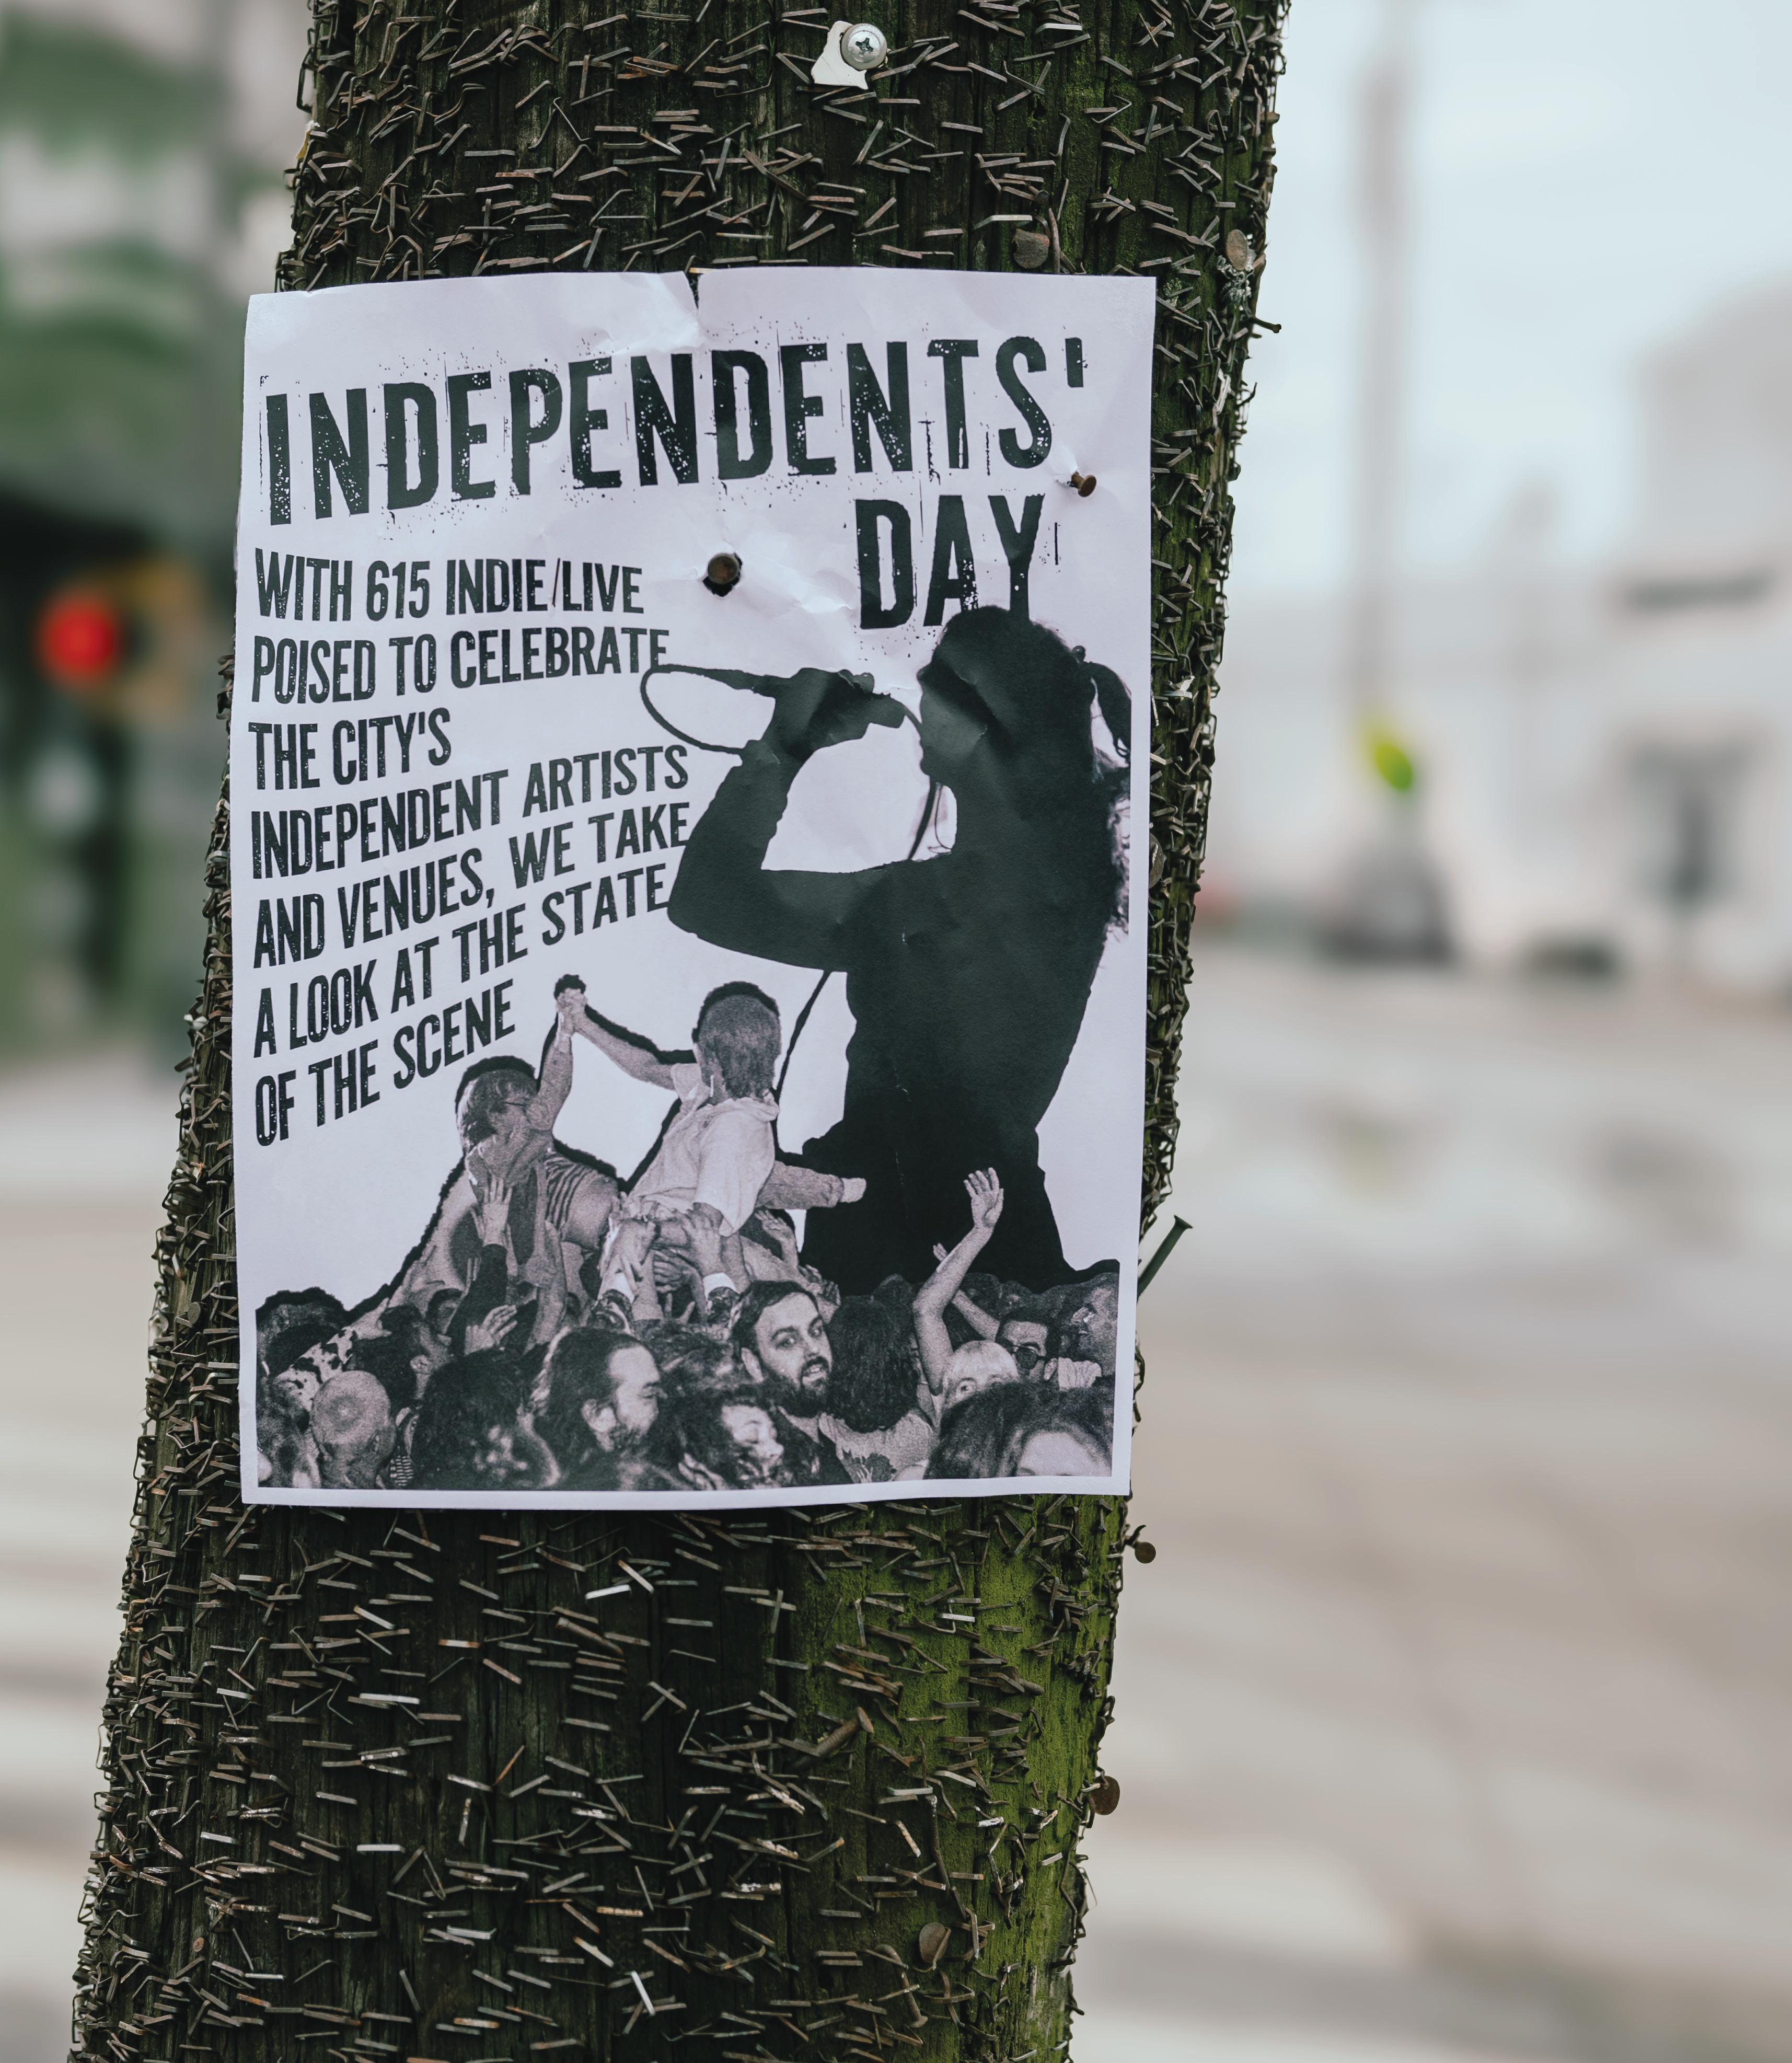 INDEPENDENTS'
DAY
WITH 615 INDIE/LIVE
POISED TO CELEBRATE
THE CITY'S
INDEPENDENT ARTISTS
AND VENUES, WE TAKE
A LOOK AT THE STATE
OF THE SCENE